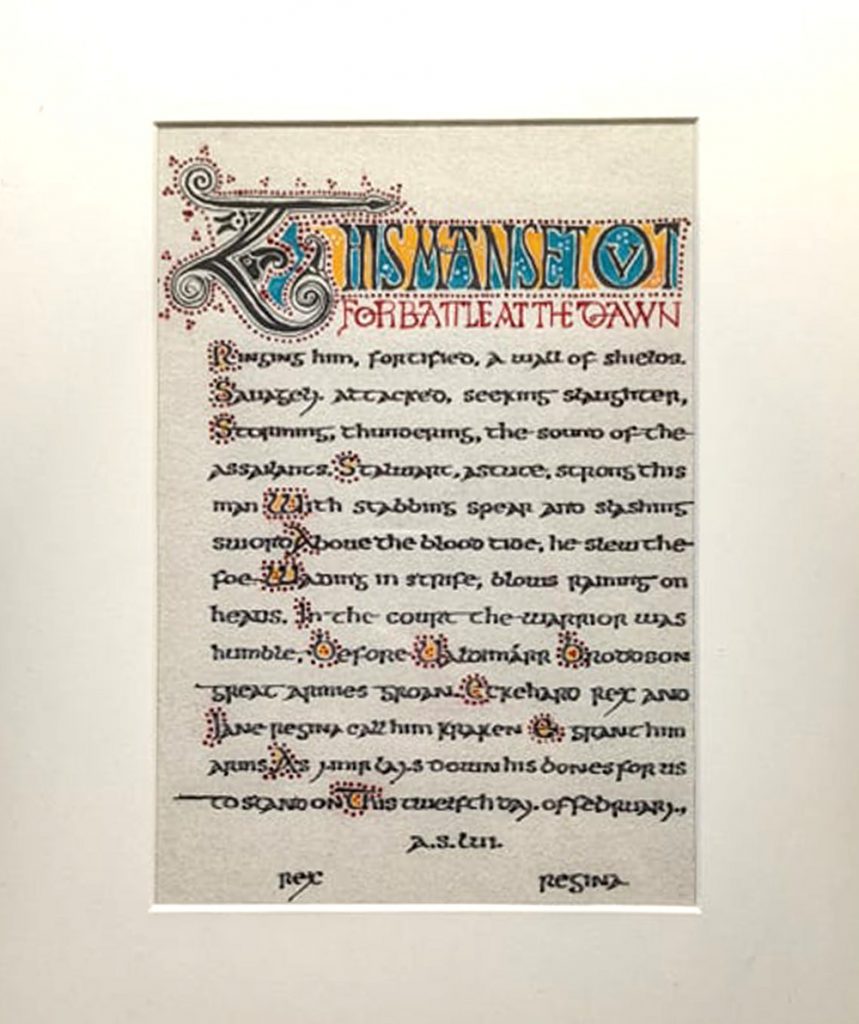 THIS MAN SET OVT
FOR BATTLE AT THE DAWN
Ringing him, fortified, a wall of shields.
Savagely attacked, seeking slaughter,
Storming, thundering, the sound of the
assailants. Stalwart, astute, strong this
man With stabbing spear and slashing
sword Above the blood tide, he slew the
foe. Wading in strife, blows raining on
heads. In the court the warrior was
humble, Before Valdimárr Broddson
great armies groan. Eckehard Rex and
Jane Regina call him Kraken & grant him
arms. As Ymir lays down his bones for us
to stand on This twelfth day. of february.,
A.S. LVII.
Rex Regina